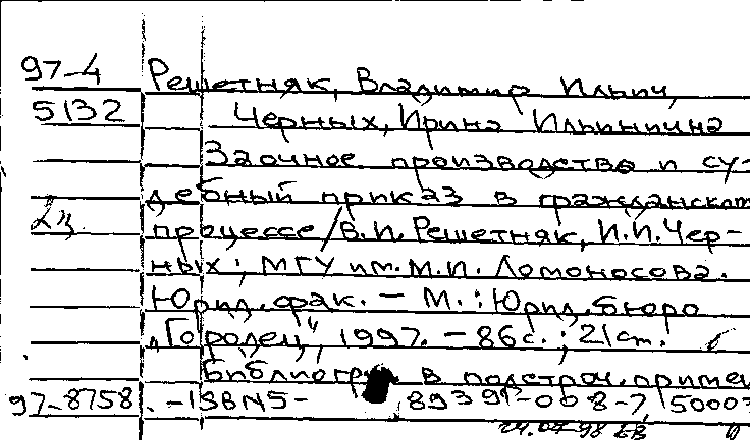 97-4 Решетняк, Владимир Ильич,
5132 Черных, Ирина Ильинична
Заочное производство и су-
дебный приказ в гражданском
2ц процессе / В.И. Решетняк, И.И. Чер-
ных; МГУ им. М.И. Ломоносова.
Юрид. фак. — М.: Юрид. бюро
"Городец", 1997. — 86 с.; 21 см.
Библиогр. в подстроч. примеч
97-8758 . — ISBN 5- 89391-008-7, 5000
24.04.98